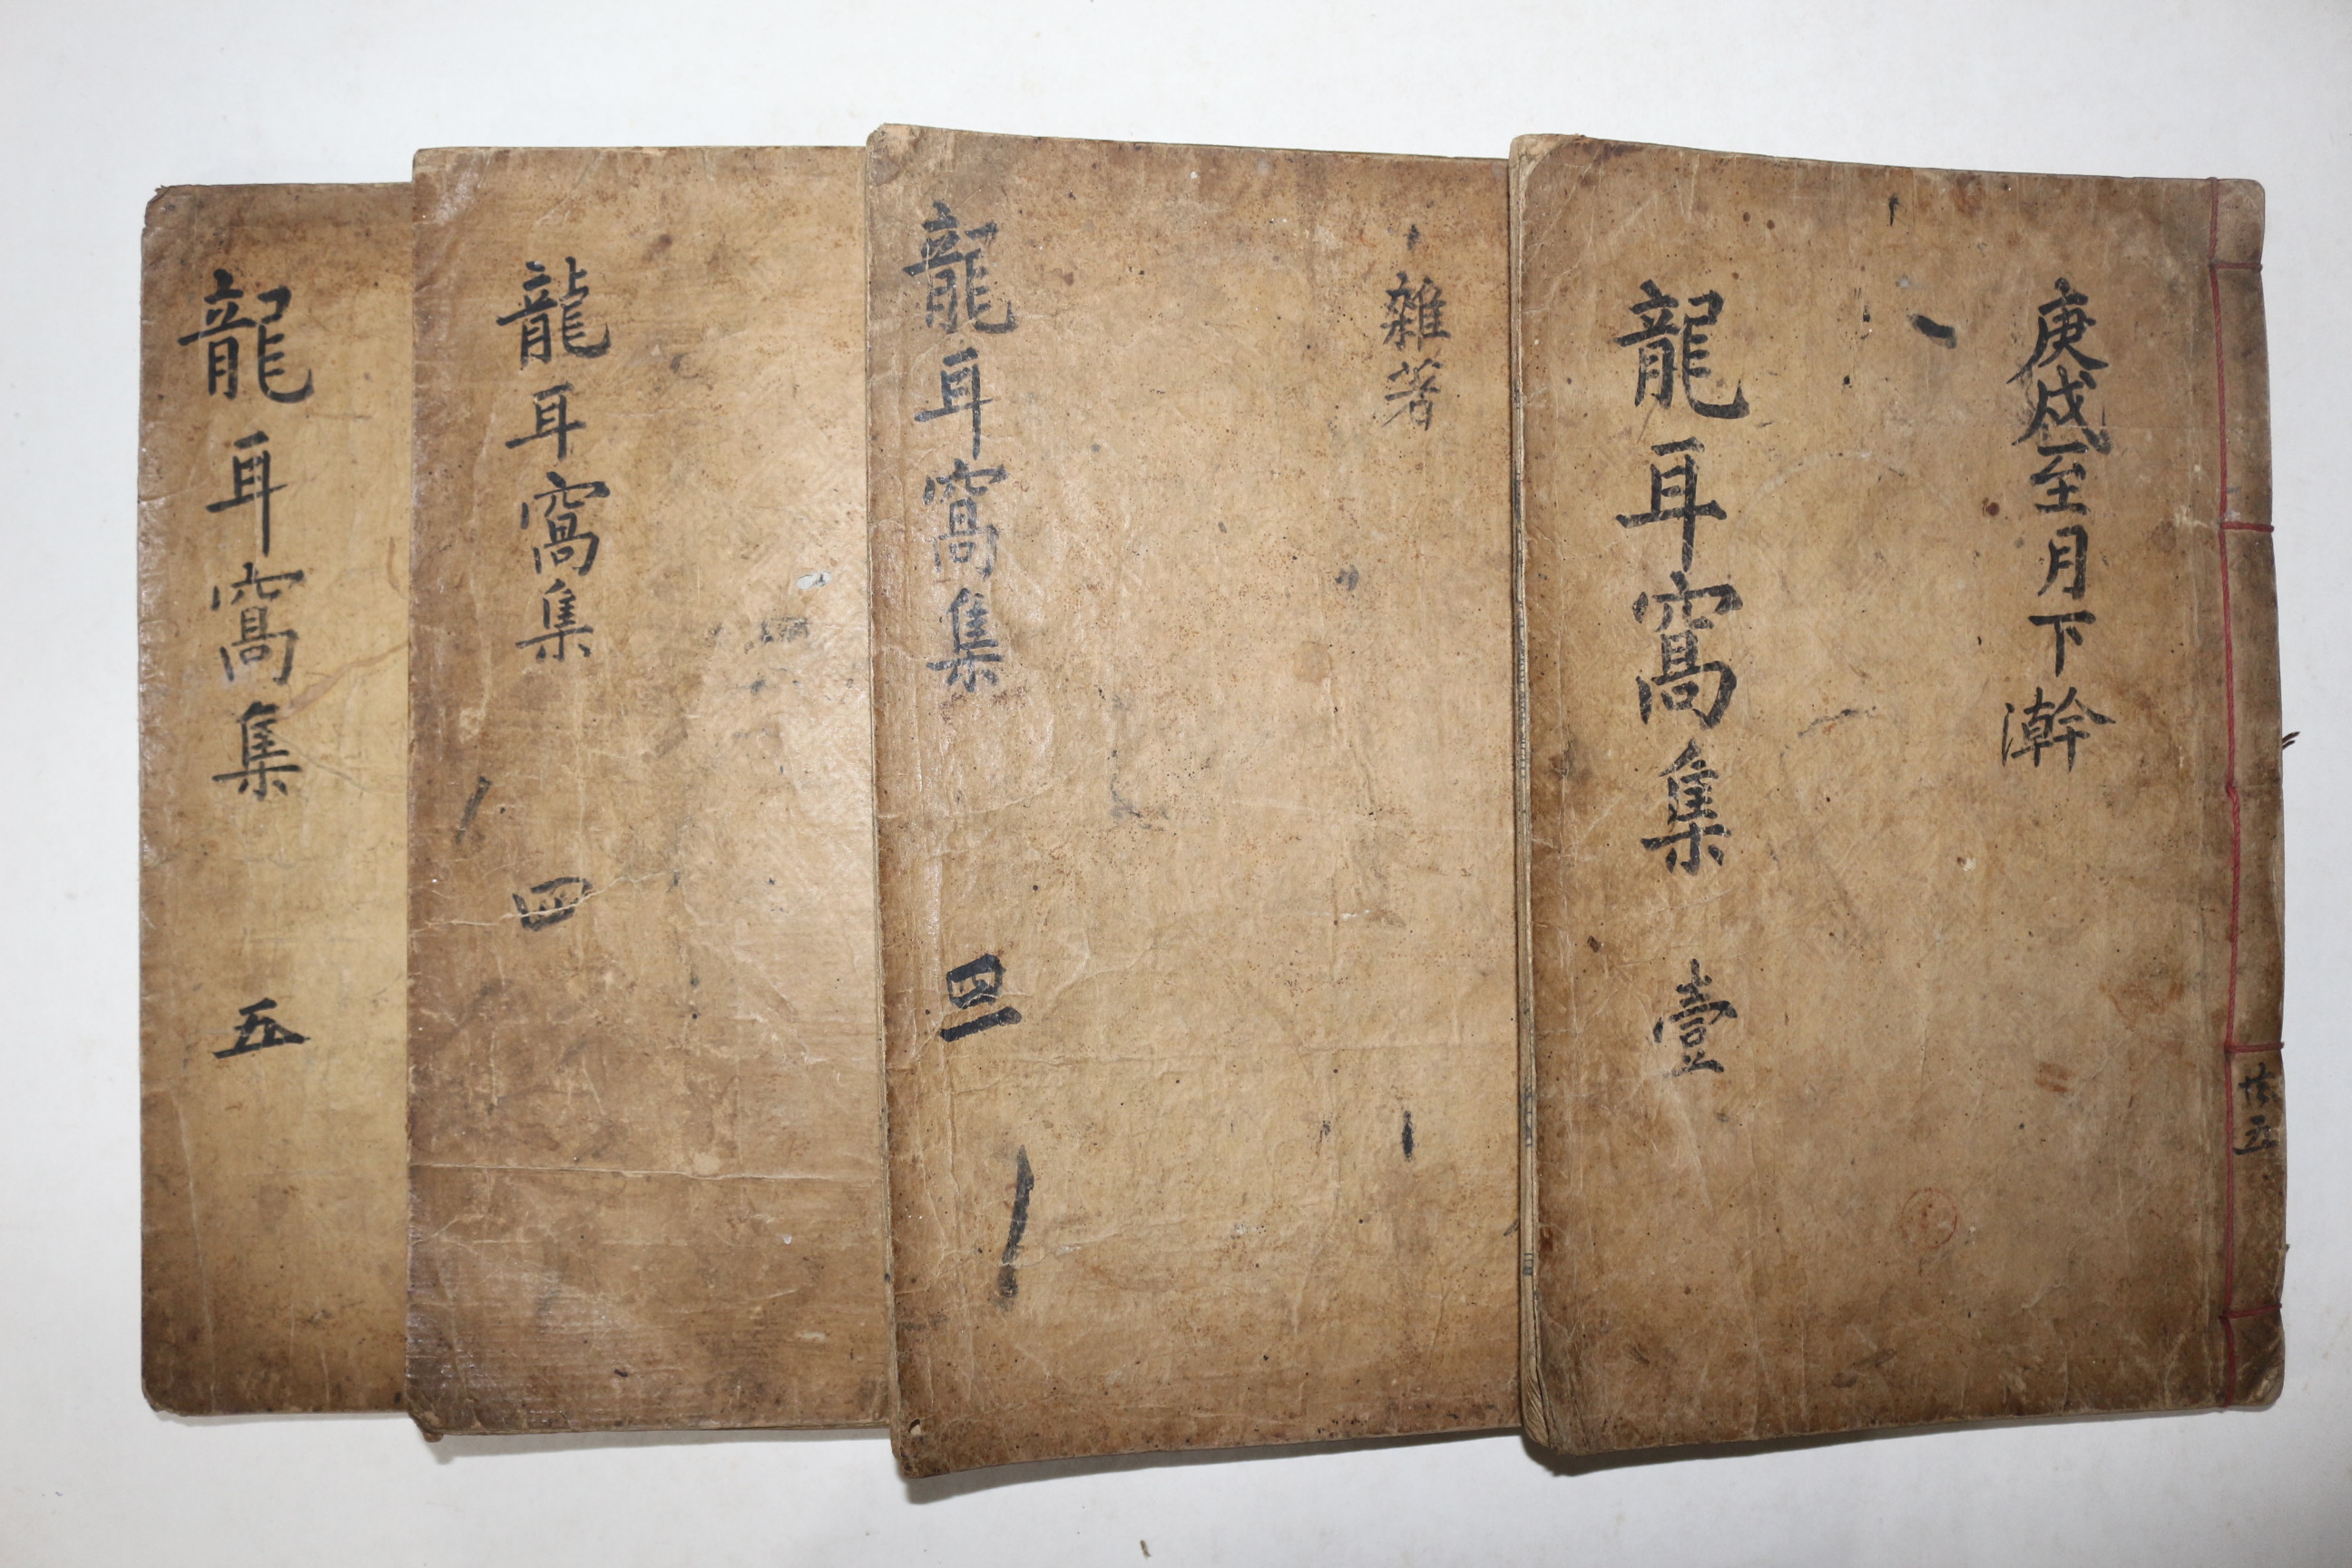 共五
庚戌至月下澣
龍耳窩集 壹
雜著
龍耳窩集 三
龍耳窩集 四
龍耳窩集 五